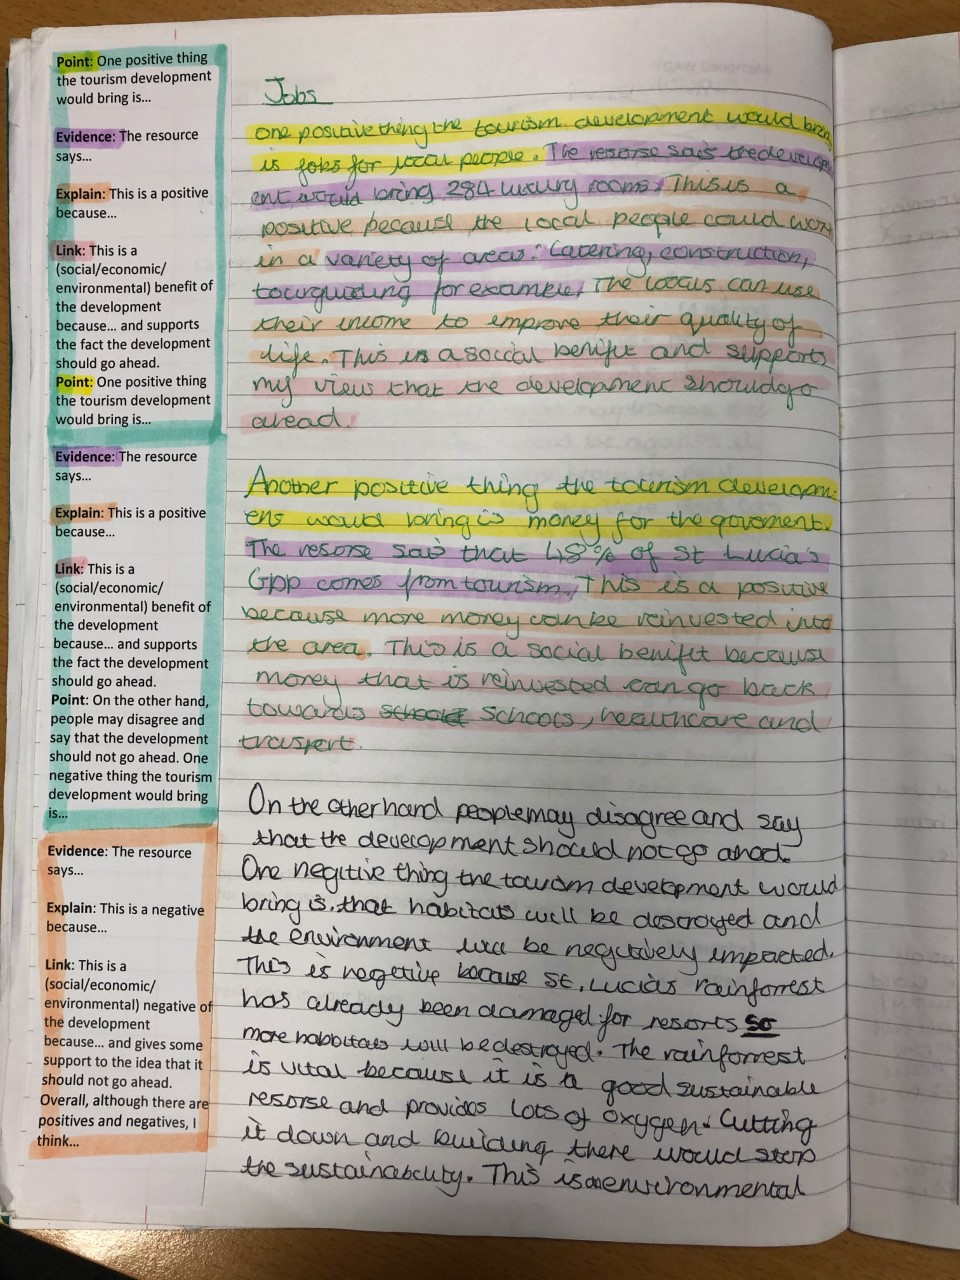 Point: One positive thing
the tourism development
would bring is...
Evidence: The resource
says...
Explain: This is a positive
because...
Link: This is a
(social/economic/
environmental) benefit of
the development
because... and supports
the fact the development
should go ahead.
Point: One positive thing
the tourism development
would bring is...
Evidence: The resource
says...
Explain: This is a positive
because...
Link: This is a
(social/economic/
environmental) benefit of
the development
because... and supports
the fact the development
should go ahead.
Point: On the other hand,
people may disagree and
say that the development
should not go ahead. One
negative thing the tourism
development would bring
is...
Evidence: The resource
says...
Explain: This is a negative
because...
Link: This is a
(social/economic/
environmental) negative of
the development
because... and gives some
support to the idea that it
should not go ahead.
Overall, although there are
positives and negatives, I
think...
Jobs
one positive thing the tourism development would bring
is jobs for local people. The resorse says the developm
ent would bring 284 luxury rooms. This is a
positive because the local people could work
in a variety of areas: Catering, construction,
tourguiding for example. The locals can use
their income to improve their quality of
life. This is a social benifit and supports
my view that the development should go
ahead.
Another positive thing the tourism developm-
ent would bring is money for the goverment.
The resorse says that 48% of St Lucia's
Gpp comes from tourism. This is a positive
because more money can be reinvested into
the area. This is a social benifit because
money that is reinvested can go back
towards schools, healthcare and
transport.
On the other hand people may disagree and say
that the development should not go ahed.
One negitive thing the tourism development would
bring is. that habitats will be destroyed and
the environment will be negitively impacted.
This is negetive because St. Lucia's rainforrest
has already been damaged for resorts so
more habbitats will be destroyed. The rainforrest
is vital because it is a good sustainable
resorse and provides lots of oxygen. Cutting
it down and building there would stop
the sustainability. This is an environmental